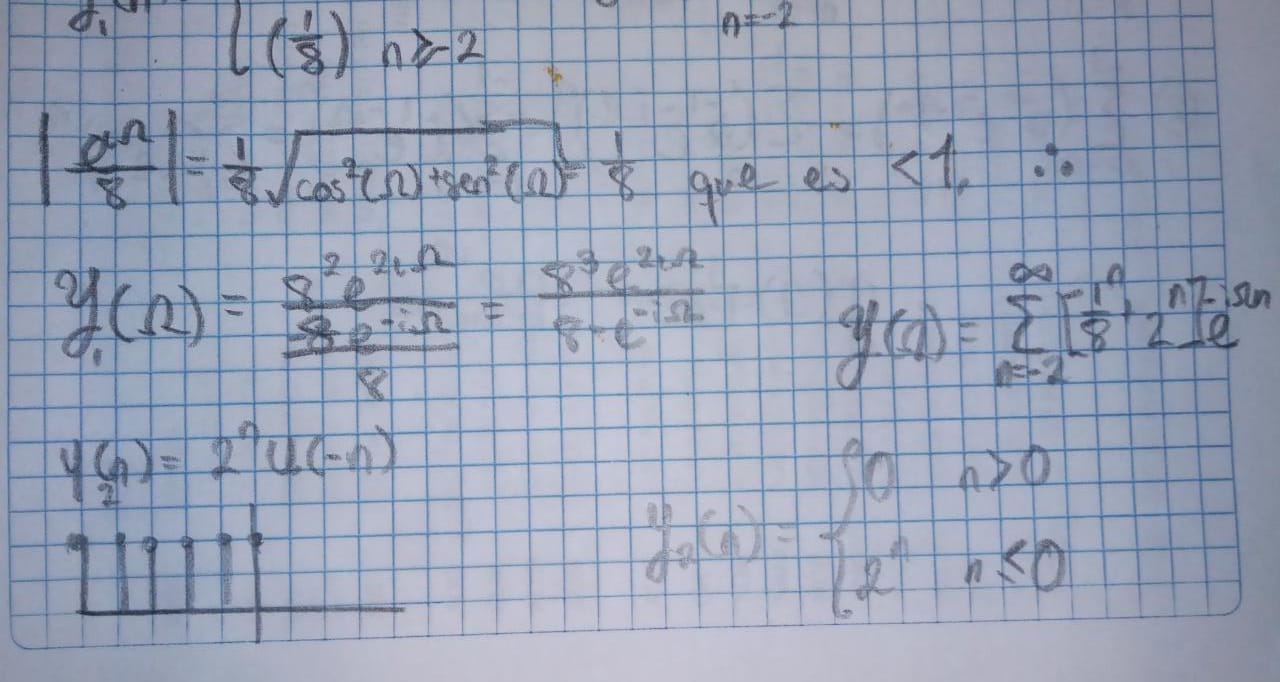 (1/8) n ≥ -2
n=-2
|e^Ω/8| = 1/8 √(cos²(Ω)+sen²(Ω)) = 1/8 que es <1, ∴
y₁(Ω) = (8² e^{2iΩ})/((8 e^{-iΩ})/8) = (8³ e^{2iΩ})/(8-e^{-iΩ})
y(Ω) = ∑_{n=-2}^{∞} [1/8^n + 2^n] e^{-iΩn}
y₂(n) = 2^n u(-n)
y₂(n) = { 0 n>0
2^n n≤0